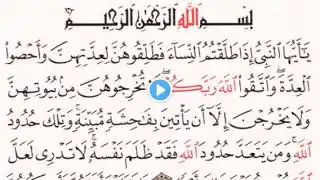 بِسْمِ اللَّهِ الرَّحْمَٰنِ الرَّحِيمِ
يَا أَيُّهَا النَّبِيُّ إِذَا طَلَّقْتُمُ النِّسَاءَ فَطَلِّقُوهُنَّ لِعِدَّتِهِنَّ وَأَحْصُوا
الْعِدَّةَ ۖ وَاتَّقُوا اللَّهَ رَبَّكُمْ ۖ تُخْرِجُوهُنَّ مِنْ بُيُوتِهِنَّ
وَلَا يَخْرُجْنَ إِلَّا أَنْ يَأْتِينَ بِفَاحِشَةٍ مُبَيِّنَةٍ ۚ وَتِلْكَ حُدُودُ
اللَّهِ ۚ وَمَنْ يَتَعَدَّ حُدُودَ اللَّهِ فَقَدْ ظَلَمَ نَفْسَهُ ۚ لَا تَدْرِي لَعَلَّ